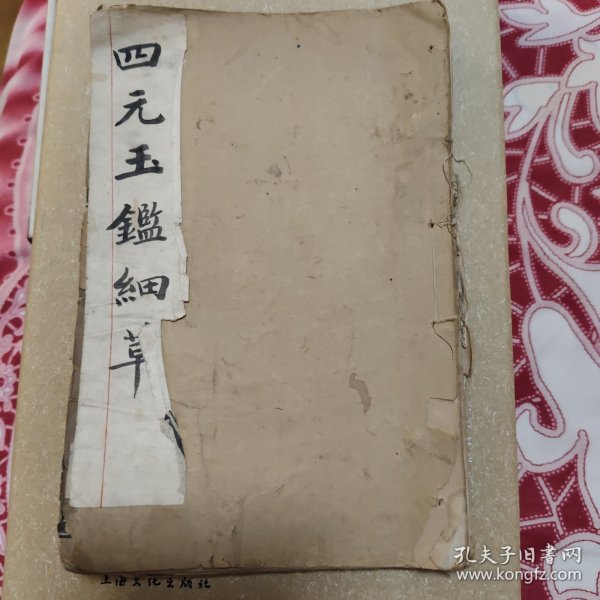 四元玉鑑細草
上海文化出版社
孔夫子旧書网
www.kongfz.com